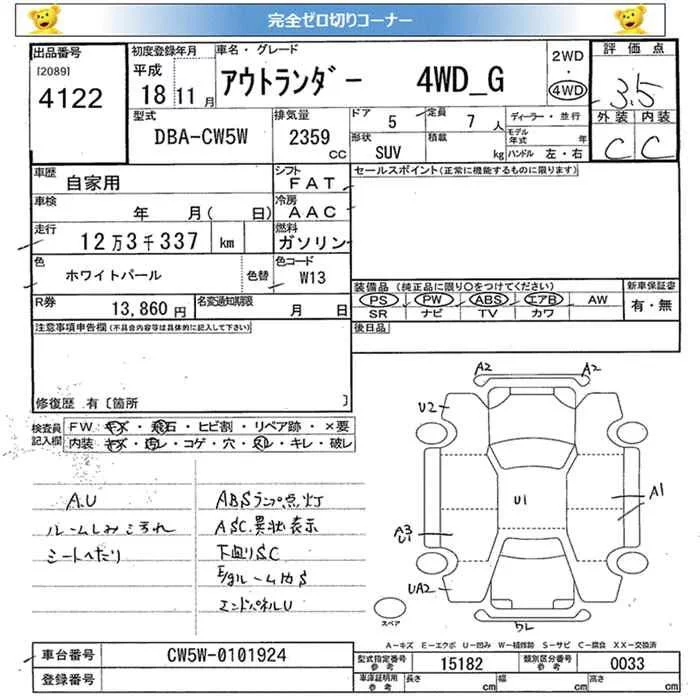 完全ゼロ切りコーナー
出品番号 初度登録年月 車名・グレード 2WD 評価点
[2089] 平成 アウトランダー 4WD_G ・ 3.5
4122 18 11月 4WD
型式 排気量 ドア 5 定員 7人 ディーラー・並行 外装 内装
DBA-CW5W 2359 cc 形状 SUV 積載 kg モデル年式 年 C C
ハンドル 左・右
車歴 自家用 シフト FAT セールスポイント(正常に機能するものに限ります)
車検 年 月( 日) 冷房 AAC
走行 12万3千337 km 燃料 ガソリン
色 ホワイトパール 色替 色コード W13
装備品 (純正品に限り○をつけてください) 新車保証書
R券 13,860円 名変通知期限 月 日 PS PW ABS エアB AW 有・無
SR ナビ TV カワ
注意事項申告欄(不具合内容等は具体的に記入して下さい) 後日品
修復歴 有〔箇所 〕
検査員記入欄 FW・キズ・飛石・ヒビ割・リペア跡・×要
内装・キズ・汚レ・コゲ・穴・スレ・キレ・破レ
A2 A2
U2
A.U ABSランプ点灯 U1 A1
ルームしみこぼれ ASC.異状表示 A3
シートへたり 下廻りSC U1
E/gルーム内S UA2
エンドパネルU ワレ
スペア
A-キズ E-エクボ U-凹み W-補修跡 S-サビ C-腐食 XX-交換済
車台番号 CW5W-0101924 型式指定番号 参考 15182 類別区分番号 参考 0033
登録番号 車庫証明用 参考 長さ cm 幅 cm 高さ cm